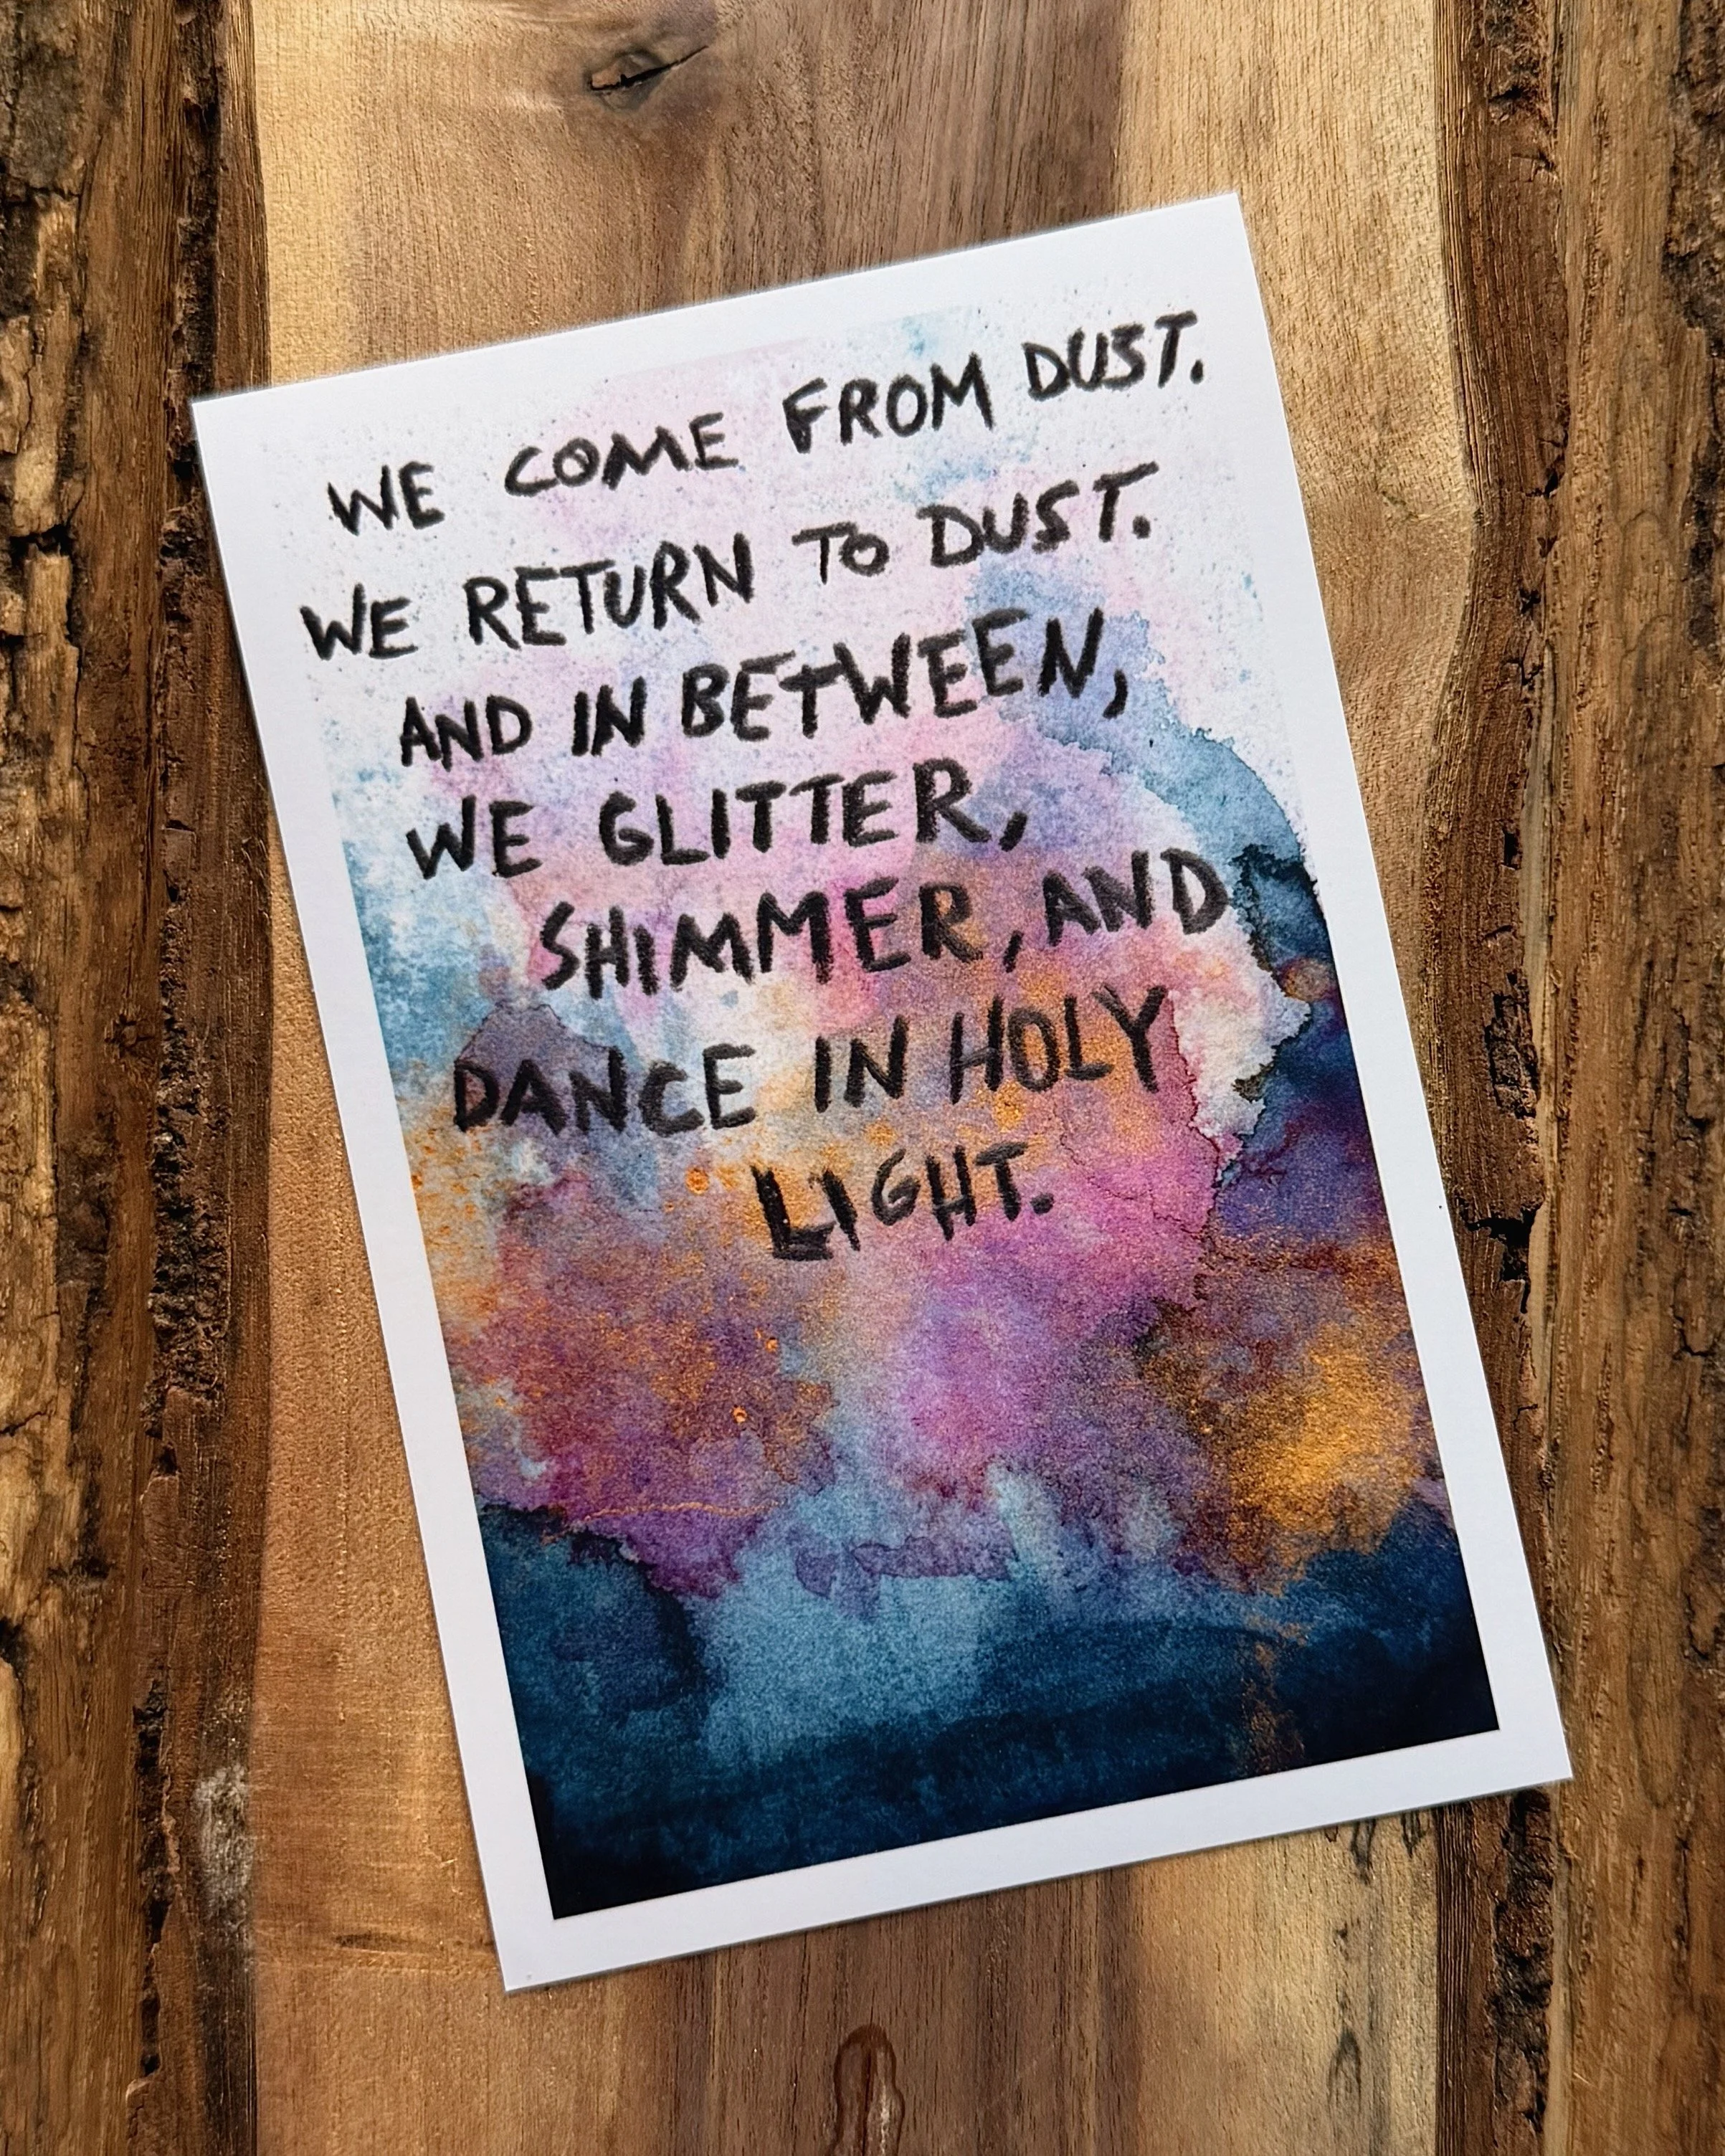 WE COME FROM DUST.
WE RETURN TO DUST.
AND IN BETWEEN,
WE GLITTER,
SHIMMER, AND
DANCE IN HOLY
LIGHT.